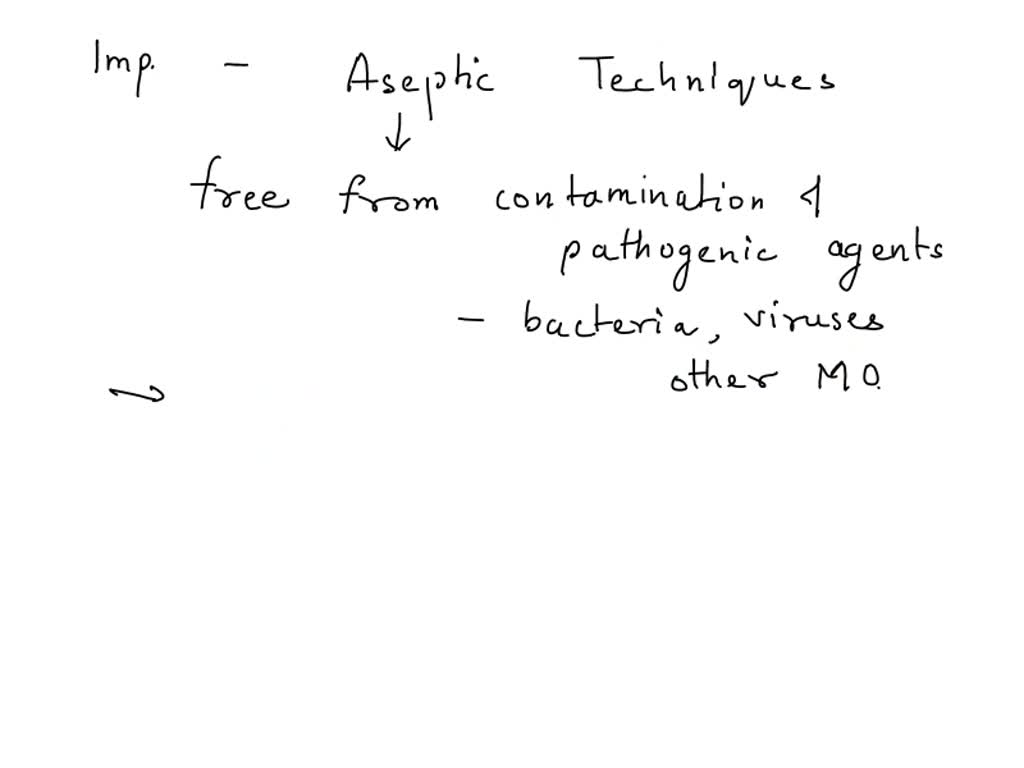 Imp. - Aseptic Techniques
↓
free from contamination &
pathogenic agents
- bacteria, viruses
other MO.
→